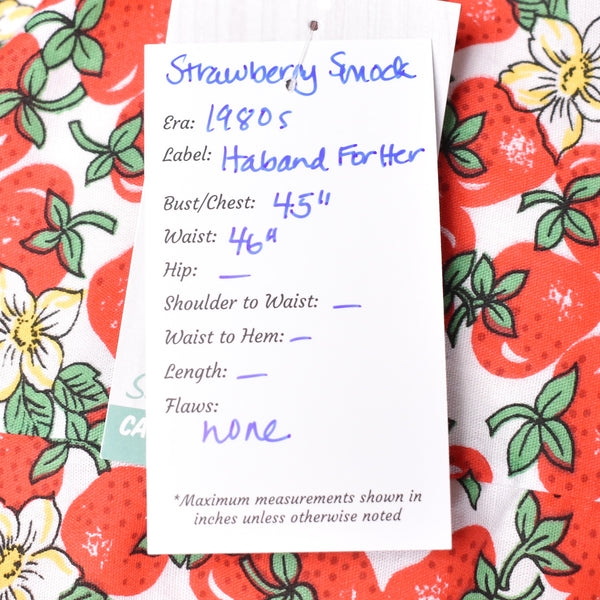 Strawberry Smock
Era: 1980s
Label: Haband For Her
Bust/Chest: 45"
Waist: 46"
Hip: —
Shoulder to Waist: —
Waist to Hem: —
Length: —
Flaws:
none
*Maximum measurements shown in
inches unless otherwise noted
S
CA